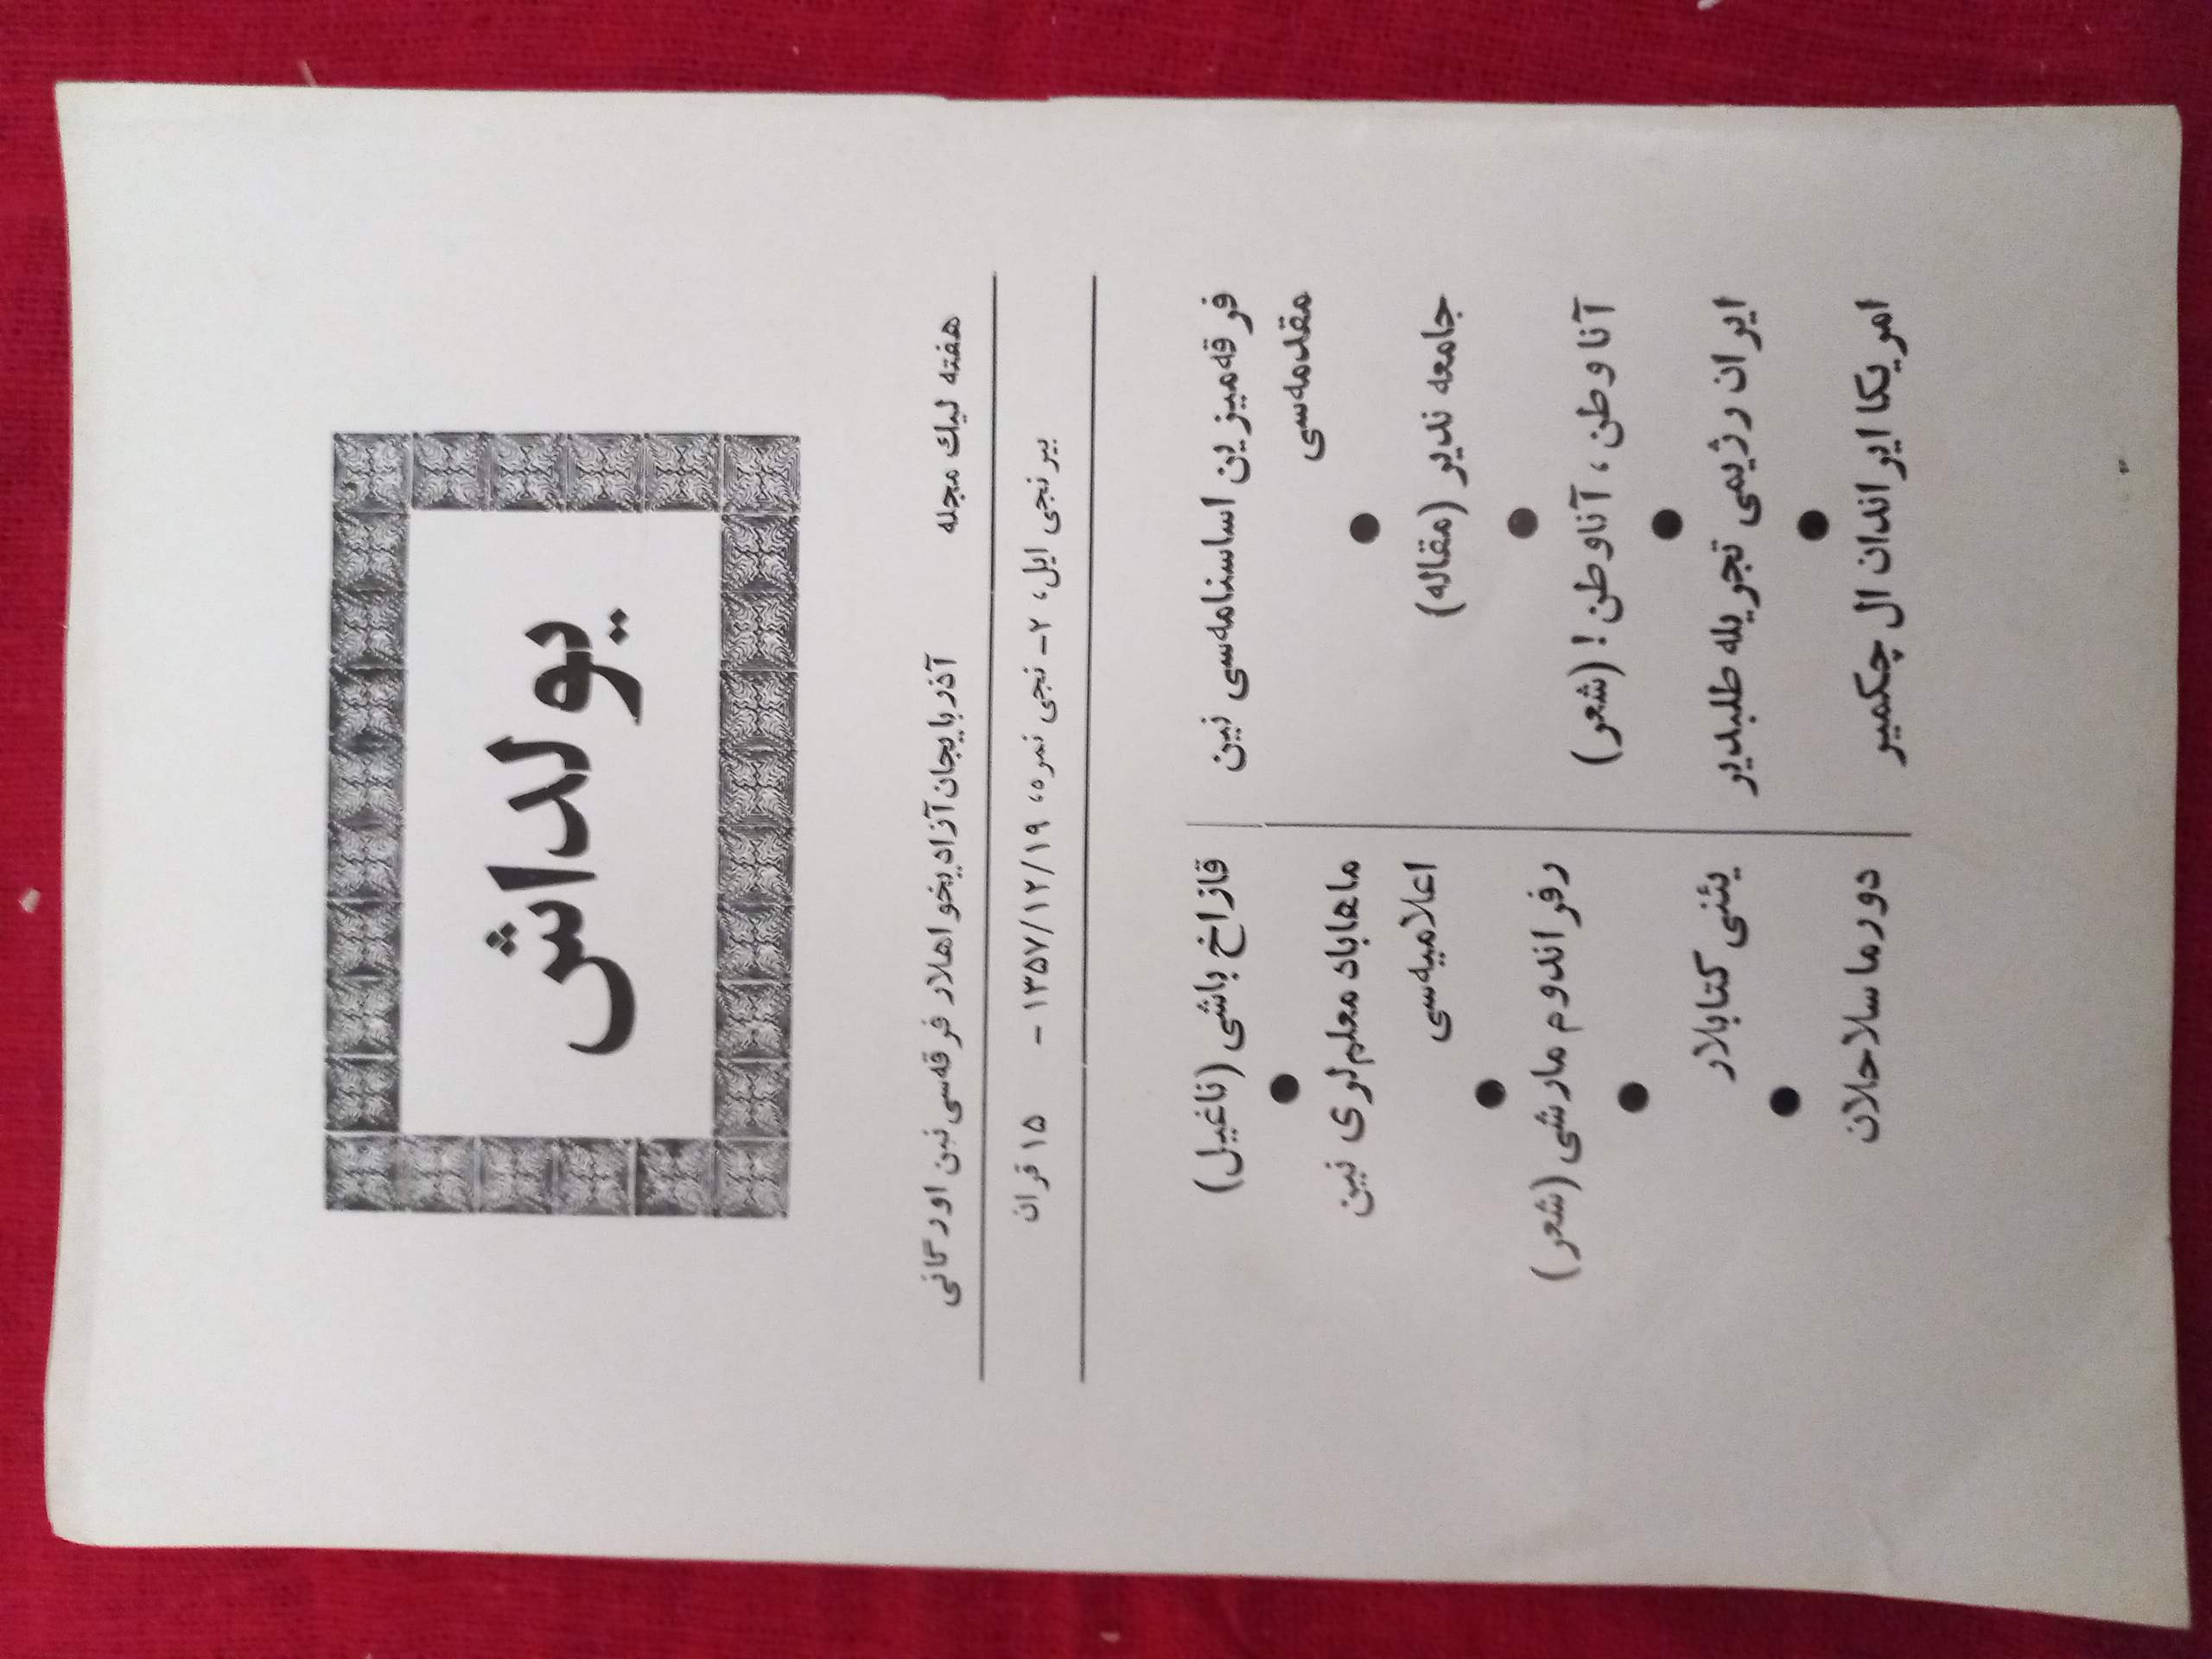 یولداش
هفته لیك مجله
آذربایجان آزادیخواهلار فرقه‌سی نین اورگانی
بیرنجی ایل، ۲- نجی نمره، ۱۳۵۷/۱۲/۱۹ - ۱۵ قران
فرقه‌میزین اساسنامه‌سی نین
مقدمه‌سی
●
جامعه ندیر (مقاله)
●
آنا وطن، آناوطن! (شعر)
●
ایران رژیمی تجریله طلبدیر
●
امریکا ایراندان ال چکمیر
قازاخ باشی (ناغیل)
●
ماهاباد معلم‌لری نین
اعلامیه‌سی
●
رفراندوم مارشی (شعر)
●
یئنی کتابلار
●
دورما سلاحلان